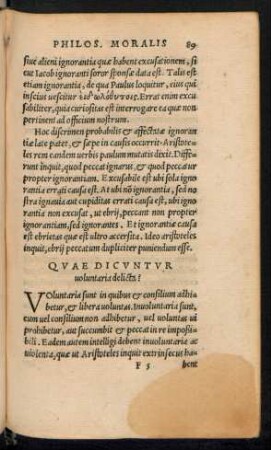 PHILOS. MORALIS 89
siue alieni ignorantia quæ habent excusationem, si
cut Iacob ignoranti soror sponsæ data est. Talis est
etiam ignorantia, de qua Paulus loquitur, eius qui
inscius uescitur εἰδωλόθυτοις. Errat enim excu
sabiliter, quia curiositas est interrogare ea quæ non
pertinent ad officium nostrum.
Hoc discrimen probabilis & affectatæ ignoran
tiæ late patet, & sæpe in causis occurrit. Aristote
les rem eandem uerbis paululum mutatis dixit. Differe
runt inquit, quod peccat ignarus, & quod peccatur
propter ignorantiam. Excusabile est ubi sola igno
rantia errati causa est. At ubi nõ ignorantia, sed no
stra ignauia aut cupiditas errati causa est, ubi igno
rantia non excusat, ut ebrij, peccant non propter
ignorantiam, sed ignorantes. Et ignorantiæ causa
est ebrietas quæ est ultro accersita. Ideo Aristoteles
inquit, ebrij peccatum dupliciter puniendum esse.
QVAE DICVNTVR
uoluntaria delicta?
VOluntaria sunt in quibus & consilium adhi
betur, & libera uoluntas. Inuoluntaria sunt,
cum uel consilium non adhibetur, uel uoluntas ui
prohibetur, aut succumbit & peccat in re impossi
bili. Eadem autem intelligi debent inuoluntaria ac
uiolenta, quæ ut Aristoteles inquit extrinsecus ha-
F 5 bent